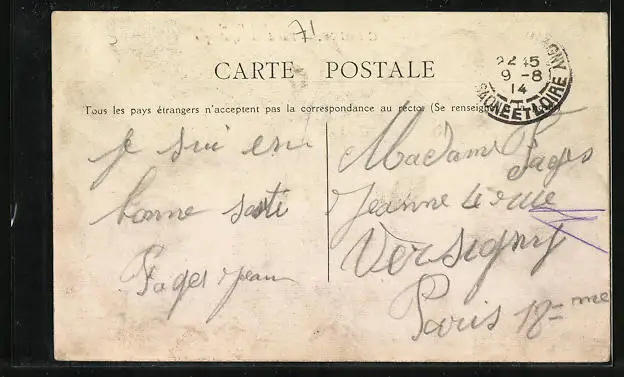 71
CARTE POSTALE
22 45
9 -8
14
AGNY
SAONE ET LOIRE
Tous les pays étrangers n'acceptent pas la correspondance au recto. (Se renseigne
je sui en
bonne santi
Pages Jean
Madame Pages
Jeanne 4 rue
Versigny
Paris 18 me